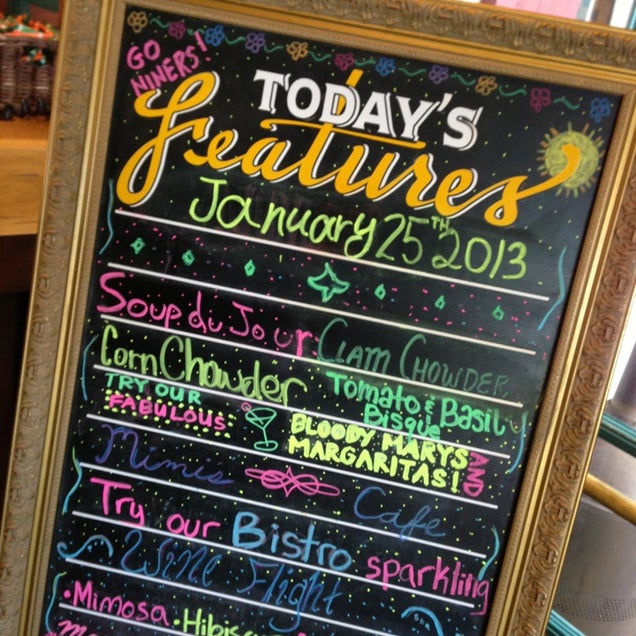 GO NINERS!
TODAY'S
Features
January 25TH 2013
Soup du Jour CLAM CHOWDER
Corn Chowder Tomato & Basil Bisque
TRY OUR FABULOUS BLOODY MARYS AND MARGARITAS!
Mimis Cafe
Try our Bistro sparkling
Wine Flight
• Mimosa • Hibis